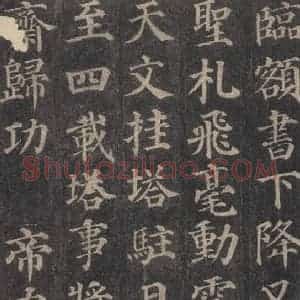 臨額書下降又
聖札飛毫動雲
天文挂塔駐日
至四載塔事將
齋歸功 帝
Shufaziliao.COM